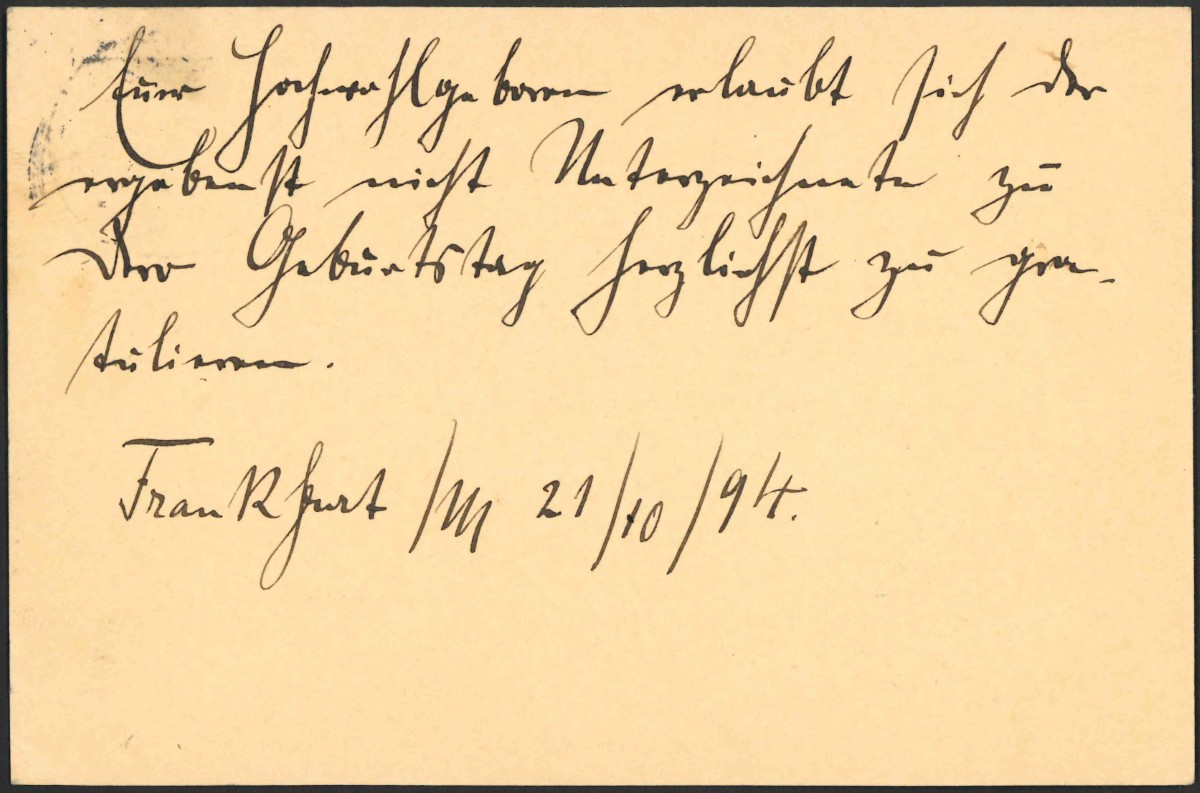 Euer Hochwohlgeboren erlaubt sich der
ergebenst nicht Unterzeichnete zu
Dero Geburtstag herzlichst zu gra-
tulieren.
Frankfurt/M 21/10/94.